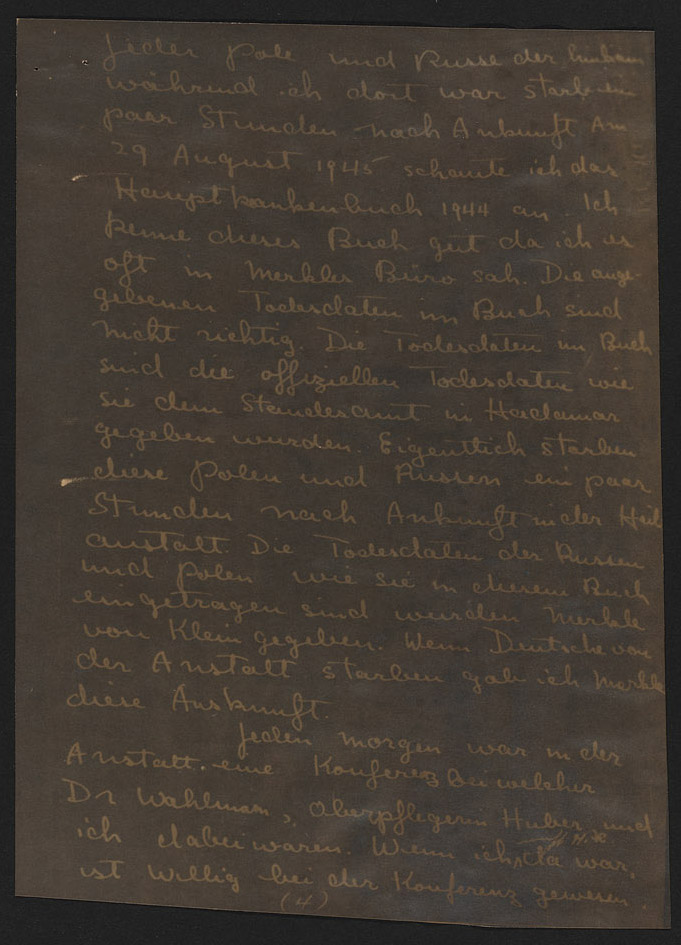 Jeder Pole und Russe der hinkam
während ich dort war starb ein
paar Stunden nach Ankunft Am
29 August 1945 schaute ich das
Hauptkrankenbuch 1944 an. Ich
kenne dieses Buch gut da ich es
oft in Merkles Büro sah. Die ange-
gebenen Todesdaten im Buch sind
nicht richtig. Die Todesdaten im Buch
sind die offiziellen Todesdaten wie
sie dem Standesamt in Hadamar
gegeben wurden. Eigentlich starben
diese Polen und Russen ein paar
Stunden nach Ankunft in der Heil
anstalt. Die Todesdaten der Russen
und Polen wie sie in diesem Buch
eingetragen sind wurden Merkle
von Klein gegeben. Wenn Deutsche von
der Anstalt starben gab ich Merkle
diese Auskunft.
Jeden morgen war in der
Anstalt eine Konferenz bei welcher
Dr Wahlmann, Oberpflegerin Huber und
ich dabei waren. Wenn ich da war,
ist Willig bei der Konferenz gewesen.
(4)